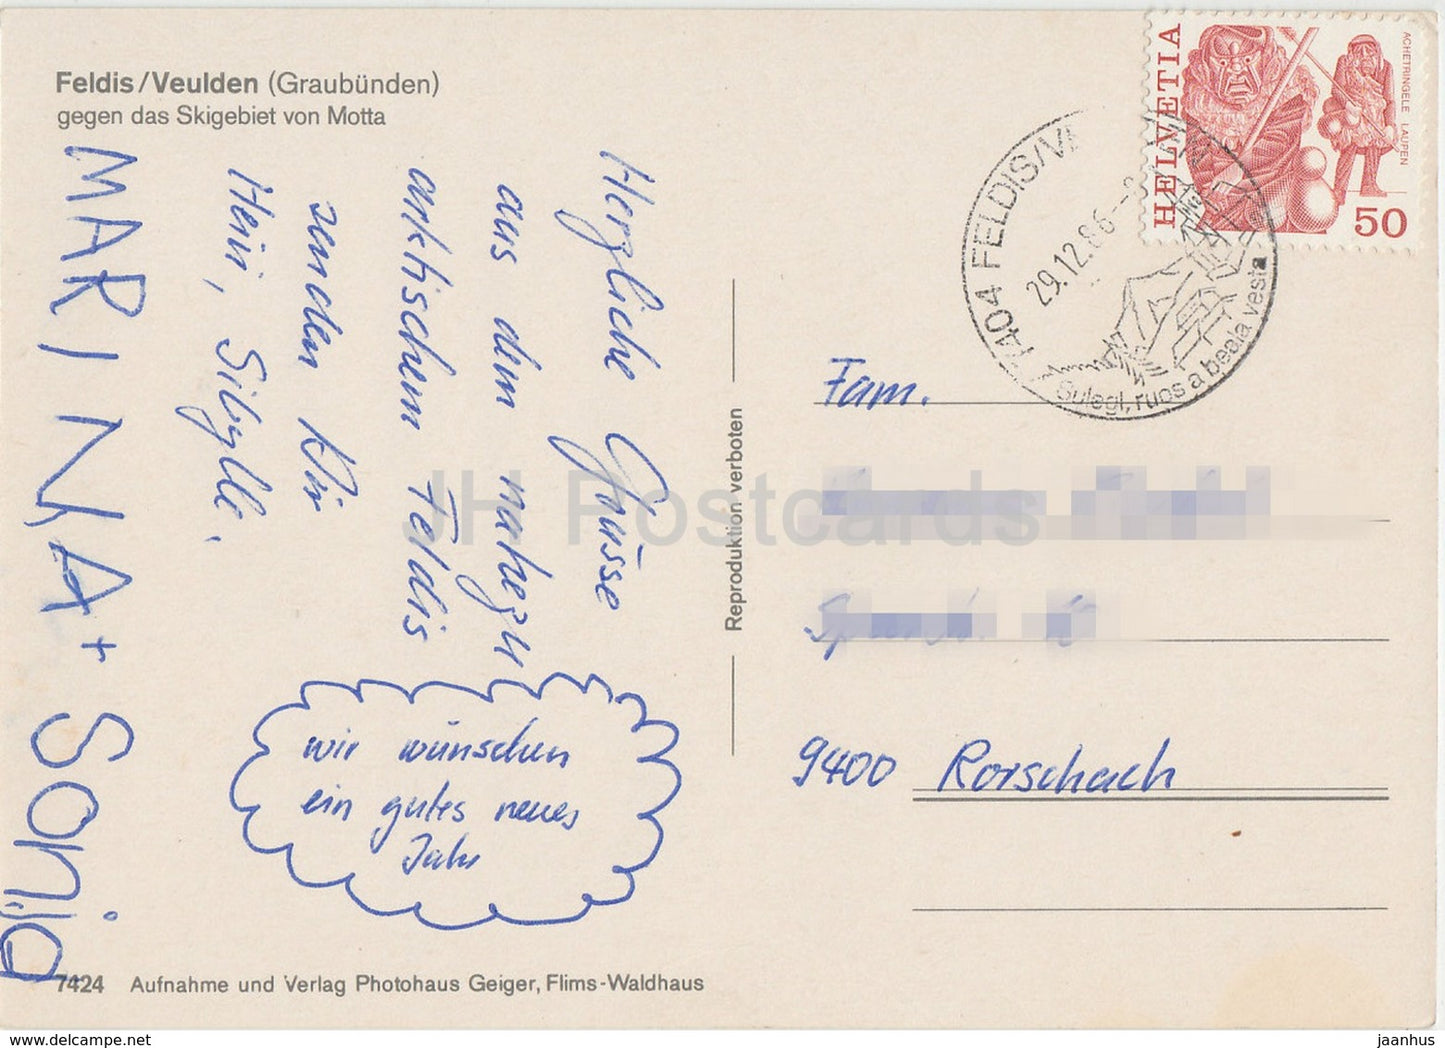 Feldis/Veulden (Graubünden)
gegen das Skigebiet von Motta
Herzliche Grüsse
aus dem nahezu
arktischem Feldis
senden Kür
Heiri, Sibylle,
MARINA + Sonja
wir wünschen
ein gutes neues
Jahr
7424 Aufnahme und Verlag Photohaus Geiger, Flims-Waldhaus
Reproduktion verboten
HELVETIA
ACHETRINGELE LAUPEN
50
7404 FELDIS/VE
29.12.86
Sulegl, ruos a beala vesta
Fam.
9400 Rorschach
JH Postcards
www.delcampe.net
jaanhus